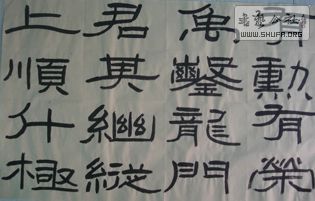 勳有榮
禹鑿龍門
君其繼縱
上順斗極
書藝公社
WWW.SHUFA.ORG